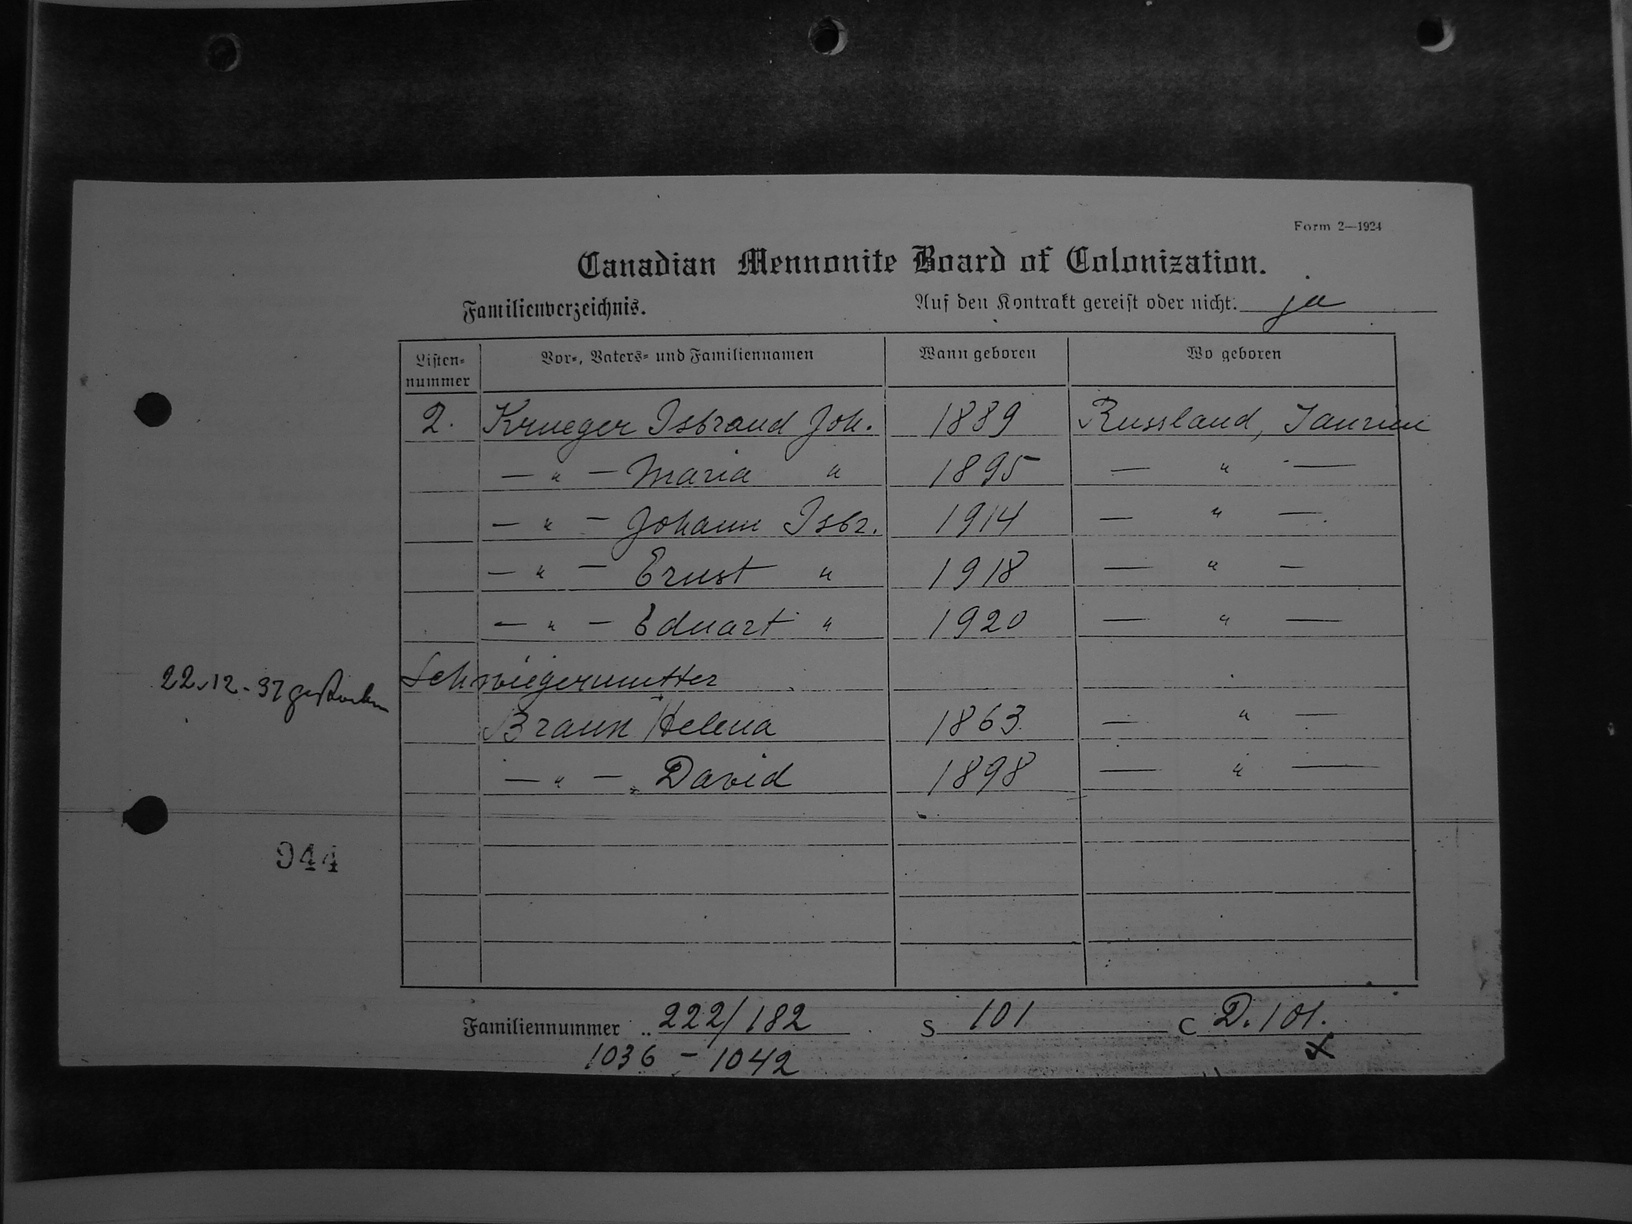 Form 2—1924
Canadian Mennonite Board of Colonization.
Familienverzeichnis. Auf den Kontrakt gereist oder nicht. ja
Listen-nummer Vor-, Vaters- und Familiennamen Wann geboren Wo geboren
2. Krueger Isbrand Joh. 1889 Russland, Taurien
— " — Maria " 1895 — " —
— " — Johann Isbr. 1914 — " —
— " — Ernst " 1918 — " —
— " — Eduart " 1920 — " —
22.12-37 gestorben Schwiegermutter
Braun Helena 1863 — " —
— " — David 1898 — " —
944
Familiennummer 222/182 S 101 C D. 101.
1036 - 1042 x